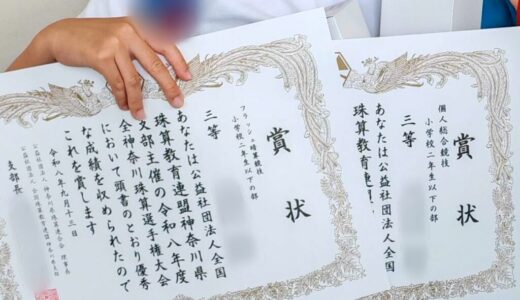 賞状
フラッシュ暗算競技
小学校二年生以下の部
三等
あなたは公益社団法人全国
珠算教育連盟神奈川県
支部主催の令和八年度
全神奈川珠算選手権大会
において頭書のとおり優秀
な成績を収められたので
これを賞します
令和八年九月十三日
公益社団法人 全国珠算教育連盟神奈川県
支部長
賞状
個人総合競技
小学校二年生以下の部
三等
あなたは公益社団法人全国
珠算教育連